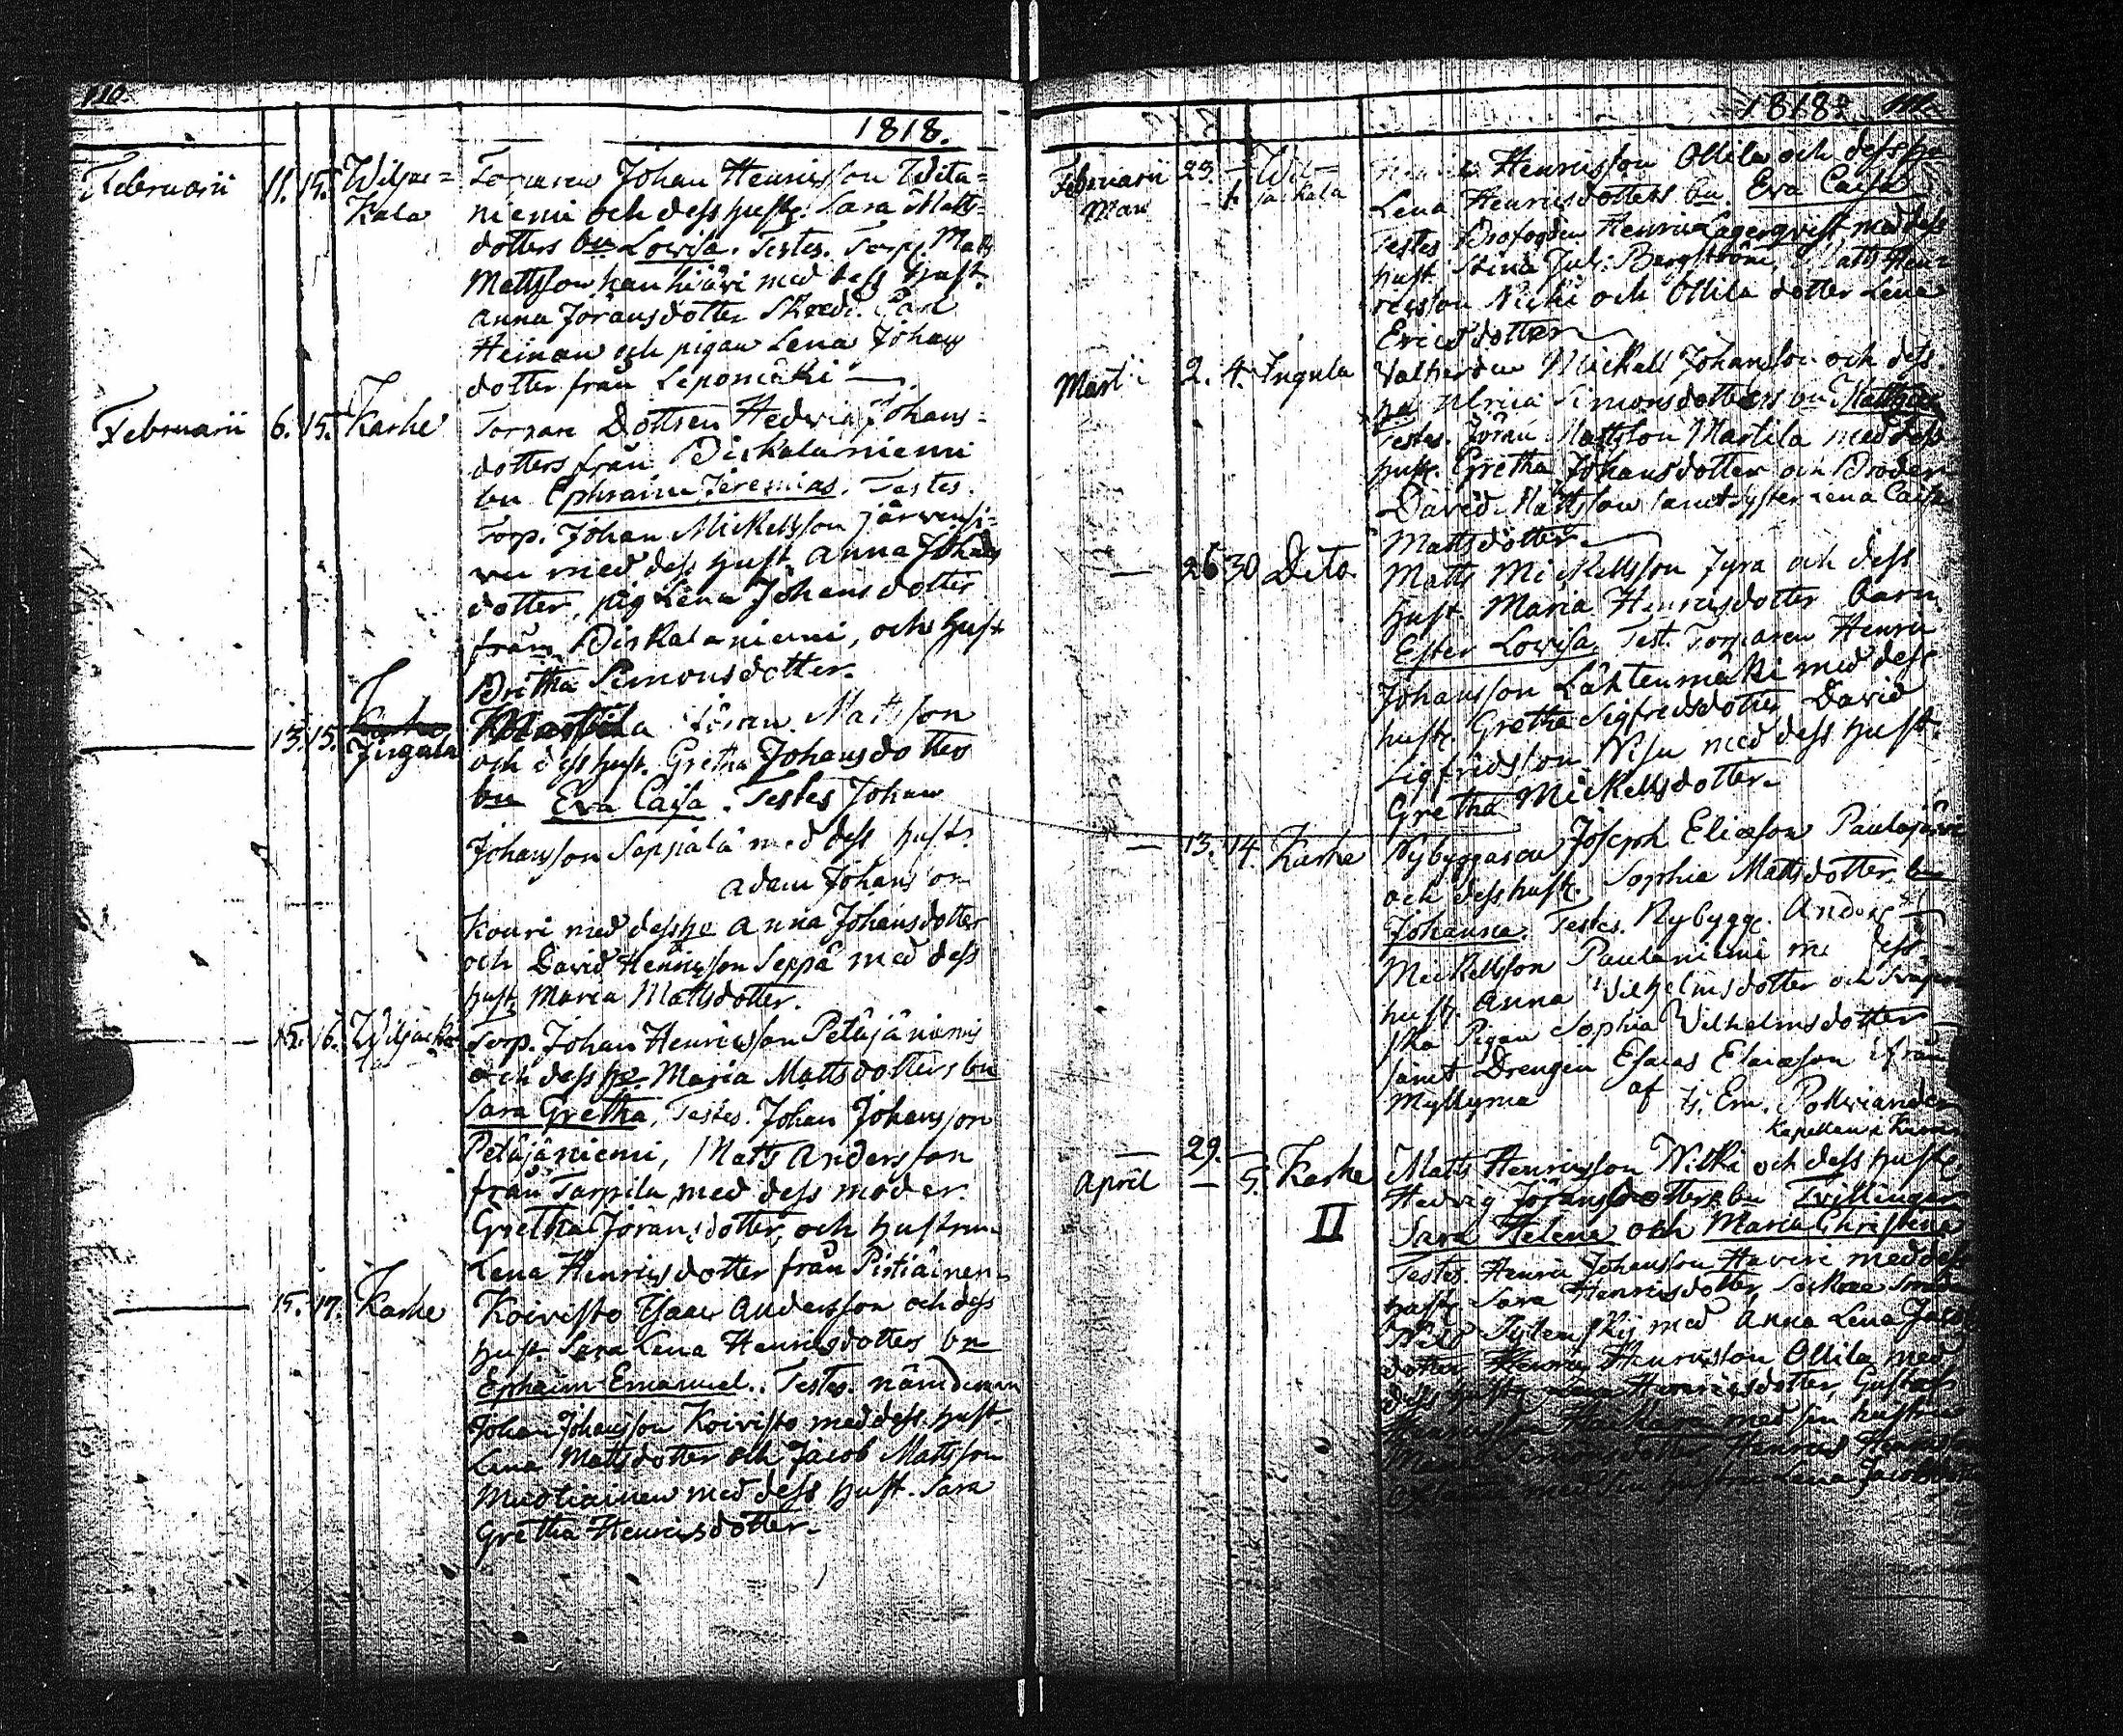 110.
1818.
Februarii 11. 15. Wiljac= Torparen Johan Henricsson Wita=
kala niemi och dess hustr. Sara Matts=
dotters bn Lovisa. Testes. Torp. Matts
Mattsson med dess hust.
Anna Jöransdotter Skredd. Carl
Heinon och pigan Lena Johans
dotter från Lepomäki
Februarii 6. 15. Karhe Torpare Dottren Hedvig Johans=
dotters från Diskalaniemi
bn Ephraim Jeremias. Testes.
Torp. Johan Mickelsson Järvensi=
vu med dess hust. Anna Johans
dotter, pig Lena Johansdotter
från Diskalaniemi, och hust
Britha Simonsdotter.
13. 15. Karhe Martila Jöran Mattsson
Ingala och dess hust. Gretha Johansdotters
bn Eva Caisa. Testes Johan
Johansson Seppälä med dess hustr.
Adam Johansson
Kouri med dess ho Anna Johansdotter
och David Henricsson Seppä med dess
hust. Maria Mattsdotter.
15. 16. Wiljacka Torp. Johan Henricsson Petäjäniemis
la och dess ho Maria Mattsdotters bn
Sara Gretha. Testes. Johan Johansson
Petäjäniemi, Matts Andersson
från Tarpila med dess moder
Gretha Jöransdotter, och hustrun
Lena Henricsdotter från
15. 17. Karhe Koivisto Isaac Andersson och dess
hust. Sara Lena Henricsdotters bn
Ephaim Emanuel. Testes. nämdeman
Johan Johansson Koivisto med dess hust.
Lena Mattsdotter och Jacob Mattsson
Muotiainen med dess hust. Sara
Gretha Henricsdotter.
1818. 111.
Februarii 23. Wil= Henricsson Ollila och dess ho
Mart 1. jackala Lena Henricsdotters bn. Eva Caisa
Testes Henric Lagerqvist med dess
hust. Stina Jul. Bergström, Matts Hen
ricsson och Ollila dotter Lena
Ericsdotter
Martii 2. 4. Ingala Mickel Johansson och dess
ho Ulrica Simonsdotters bn Matthias
Testes. Jöran Mattsson Martila med dess
hustr. Gretha Johansdotter och Broder
David Mattsson samt syster Lena Caisa
Mattsdotter
26 30 Dito Matts Mickelsson Jyra och dess
hust. Maria Henricsdotter barn
Ester Lovisa. Test. Torparen Henric
Johansson Lähtenmäki med dess
hustr. Gretha Sigfredsdotter David
Sigfridsson Nisu med dess hust.
Gretha Mickelsdotter
13. 14. Karhe Nybyggaren Joseph Eliæson Paulajärvi
och dess hustr. Sophia Mattsdotter bn
Johanna. Testes. Nybygg. Anders
Mickelsson Paulaniemi me dess
hust. Anna Vilhelmsdotter och
ska Pigan Sophia Vilhelmsdotter
samt Drengen Esaias Eliæson ifrån
Myllymä af Is. Em. Polviander
Kapellan i Kuru
29.
April 5. Karhe Matts Henricsson och dess hustr
II Hedvig Jöransdotters bn Tvillingar
Sara Helena och Maria Christina
Testes. Henric Johansson Haveri med dess
hustr Sara Henricsdotter,
med Anna Lena Jacobs
dotter, Henric Henricsson Ollila med
dess hustr Lena Henricsdotter, Gustaf
Henricsson med sin hustru
Simonsdotter, Henric Henricsson
med sin hustru Lena Jacobsdotter